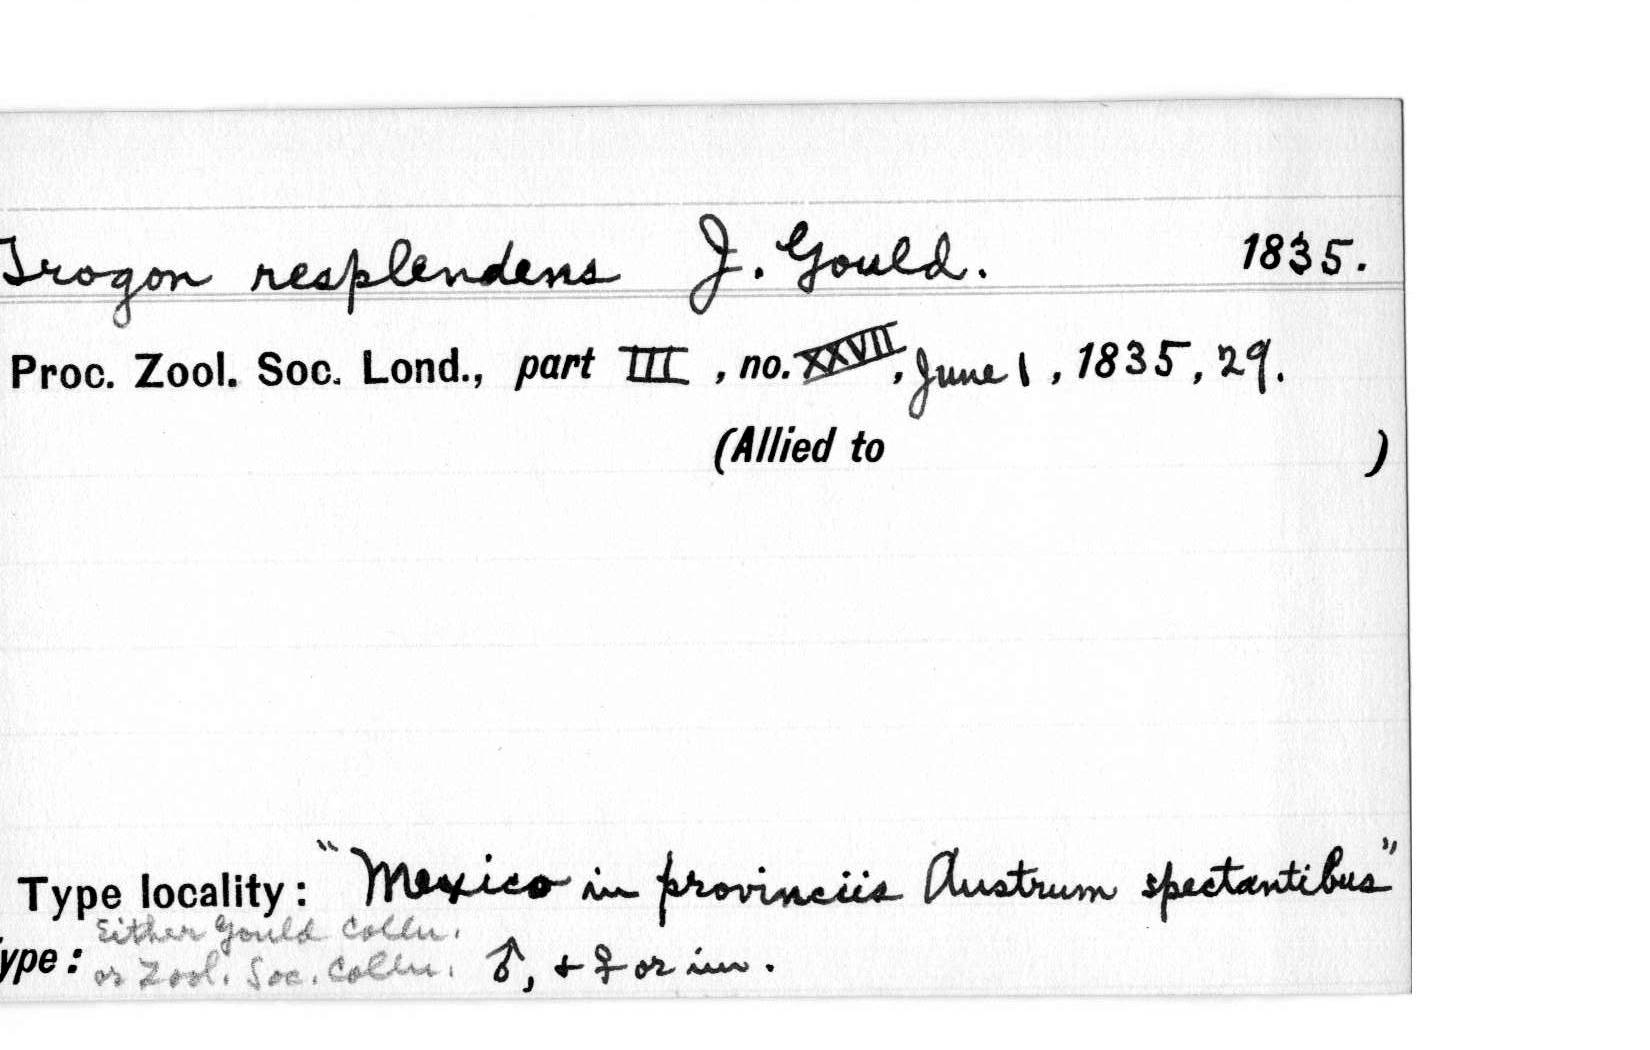 Trogon resplendens J. Gould. 1835.
Proc. Zool. Soc. Lond., part III, no. XXVII, June 1, 1835, 29.
(Allied to )
Type locality: "Mexico in provinciis Austrum spectantibus"
Either Gould Colln.
ype: or Zool. Soc. Colln. ♂, + ♀ or im.